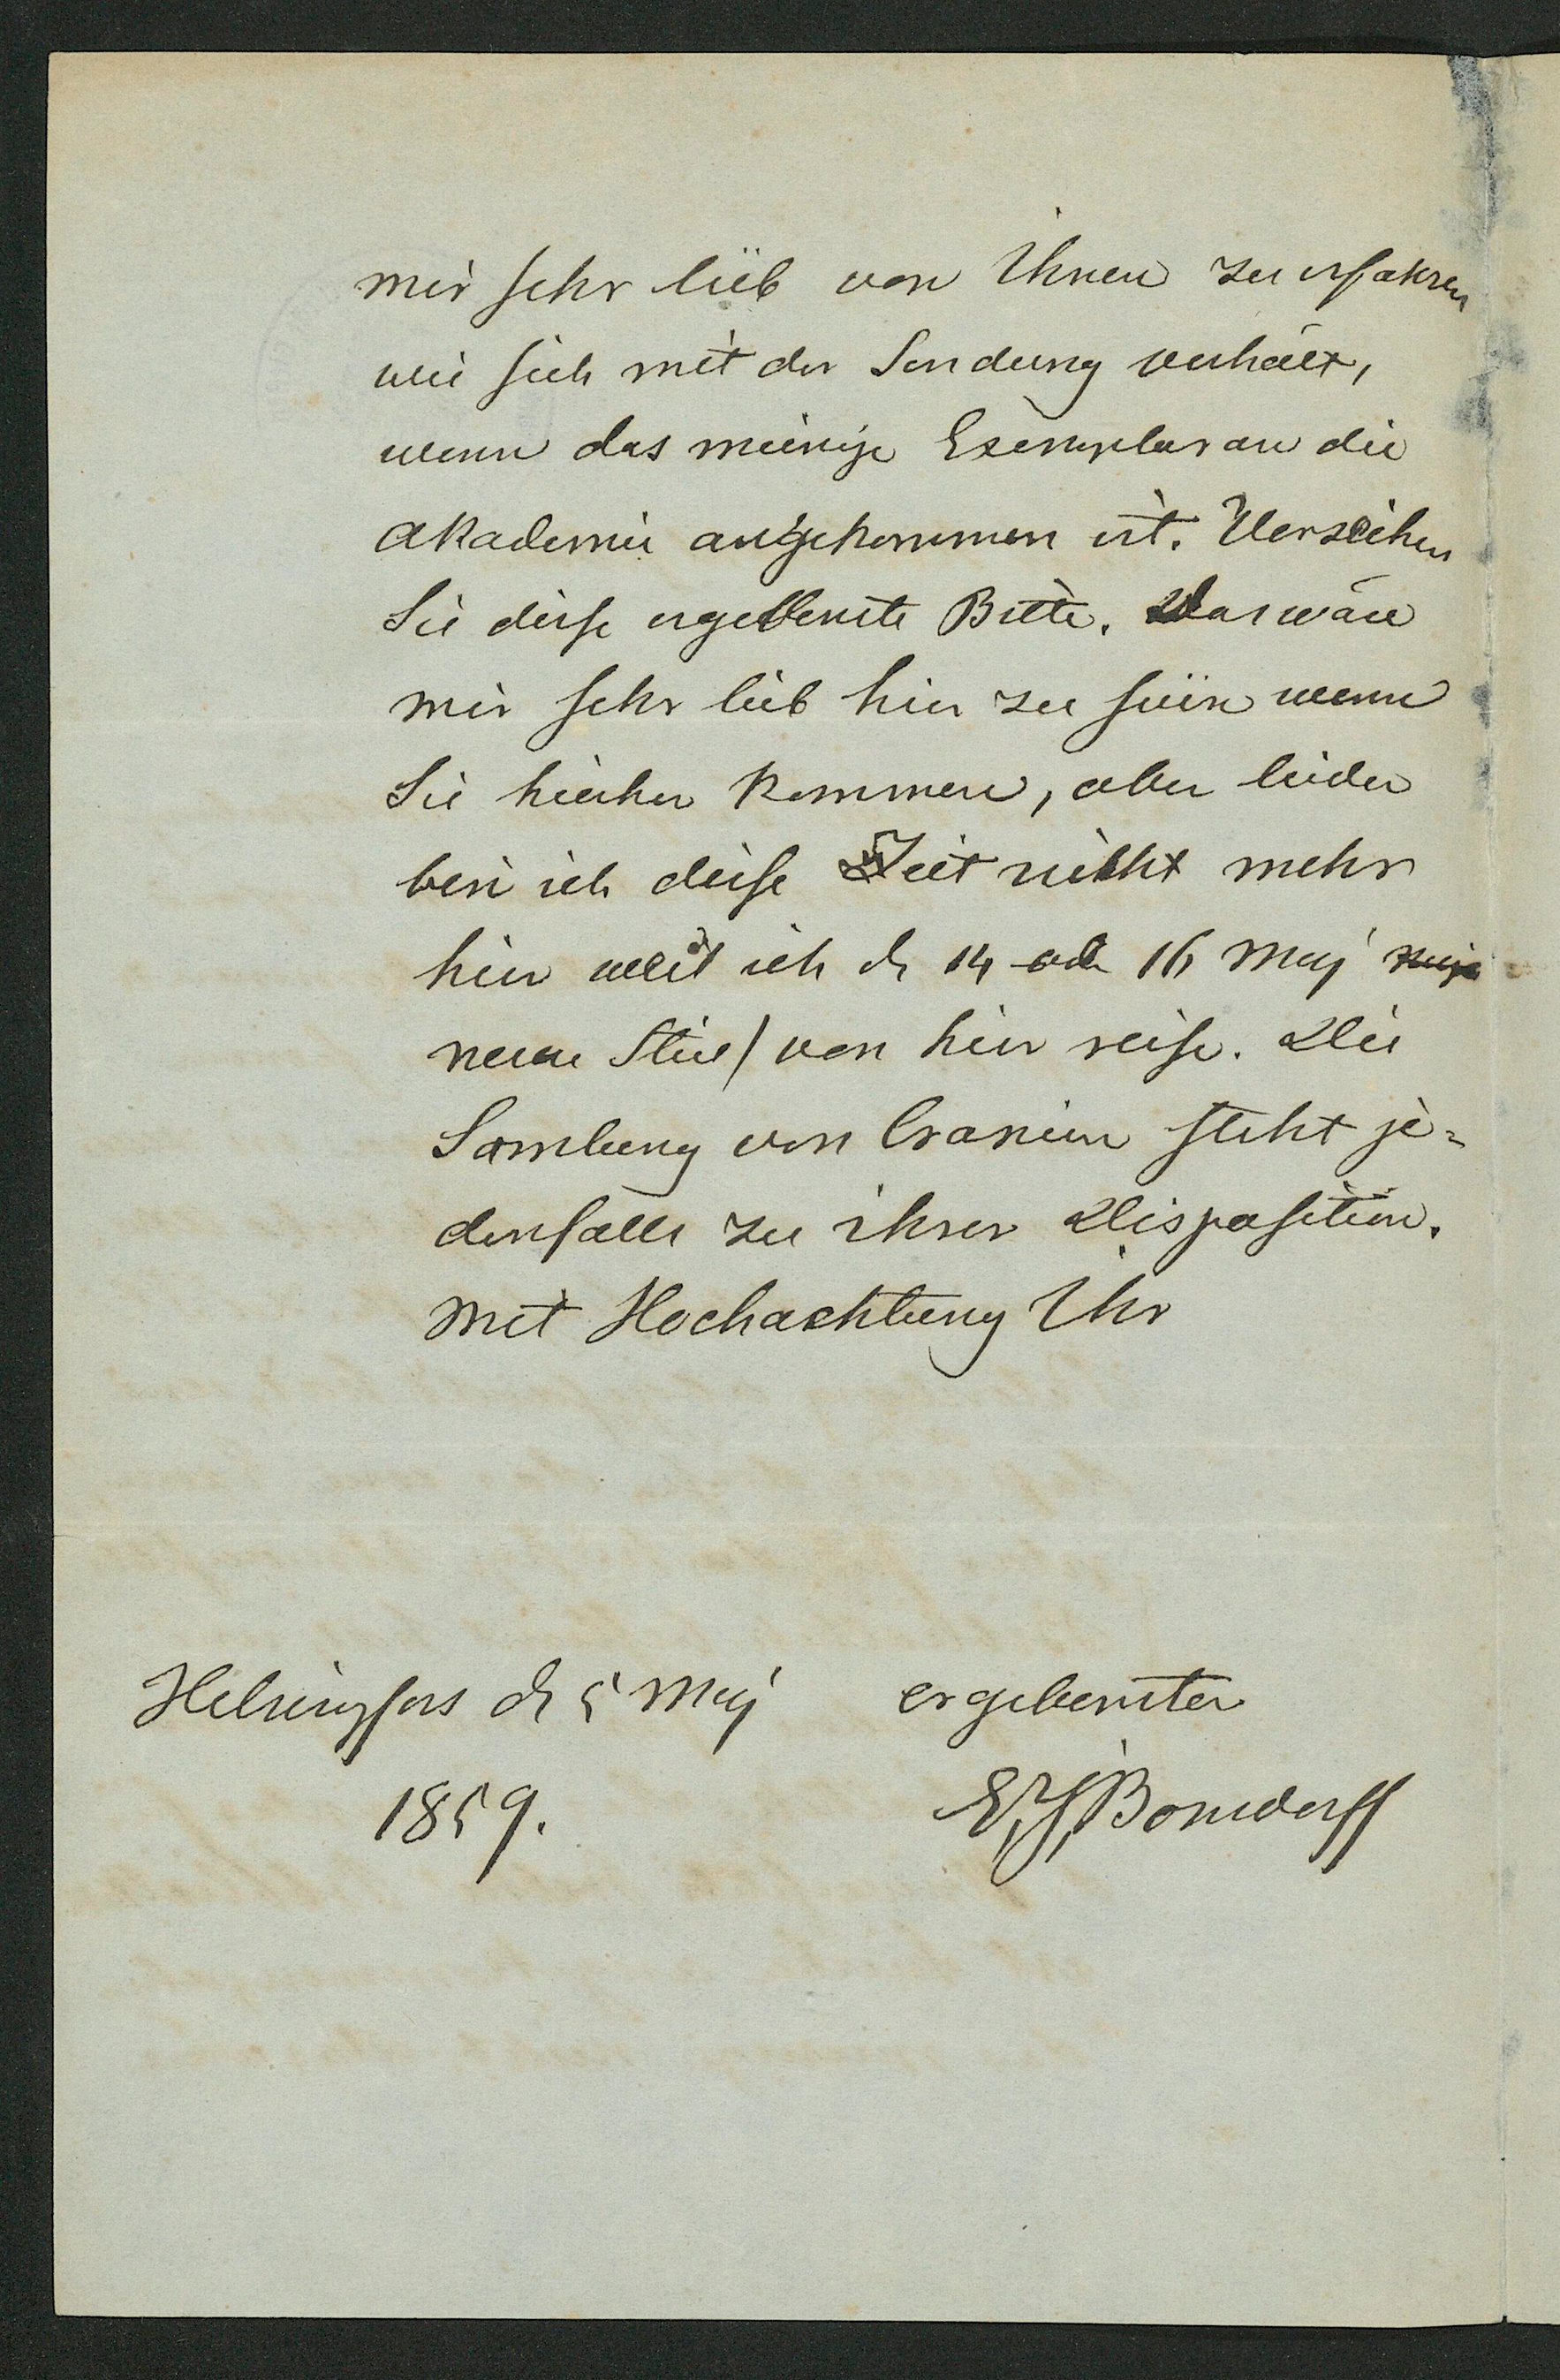 mir sehr lieb von Ihnen zu erfahren
wie sich mit der Sendung verhält,
wenn das meinige Exemplar an die
Akademie angekommen ist. Verzeihen
Sie diese ergebenste Bitte. Das wäre
mir sehr lieb hier zu sein wenn
Sie hierher kommen, aber leider
bin ich diese Zeit nicht mehr
hier weil ich d. 14 oder 16 Maj
neue Stiel/ von hier reise. Die
Samlung von Cranien steht je-
denfalls zu ihrer Disposition.
Mit Hochachtung Ihr
Helsingfors d. 5 Maj ergebenster
1859. EJ Bonsdorff